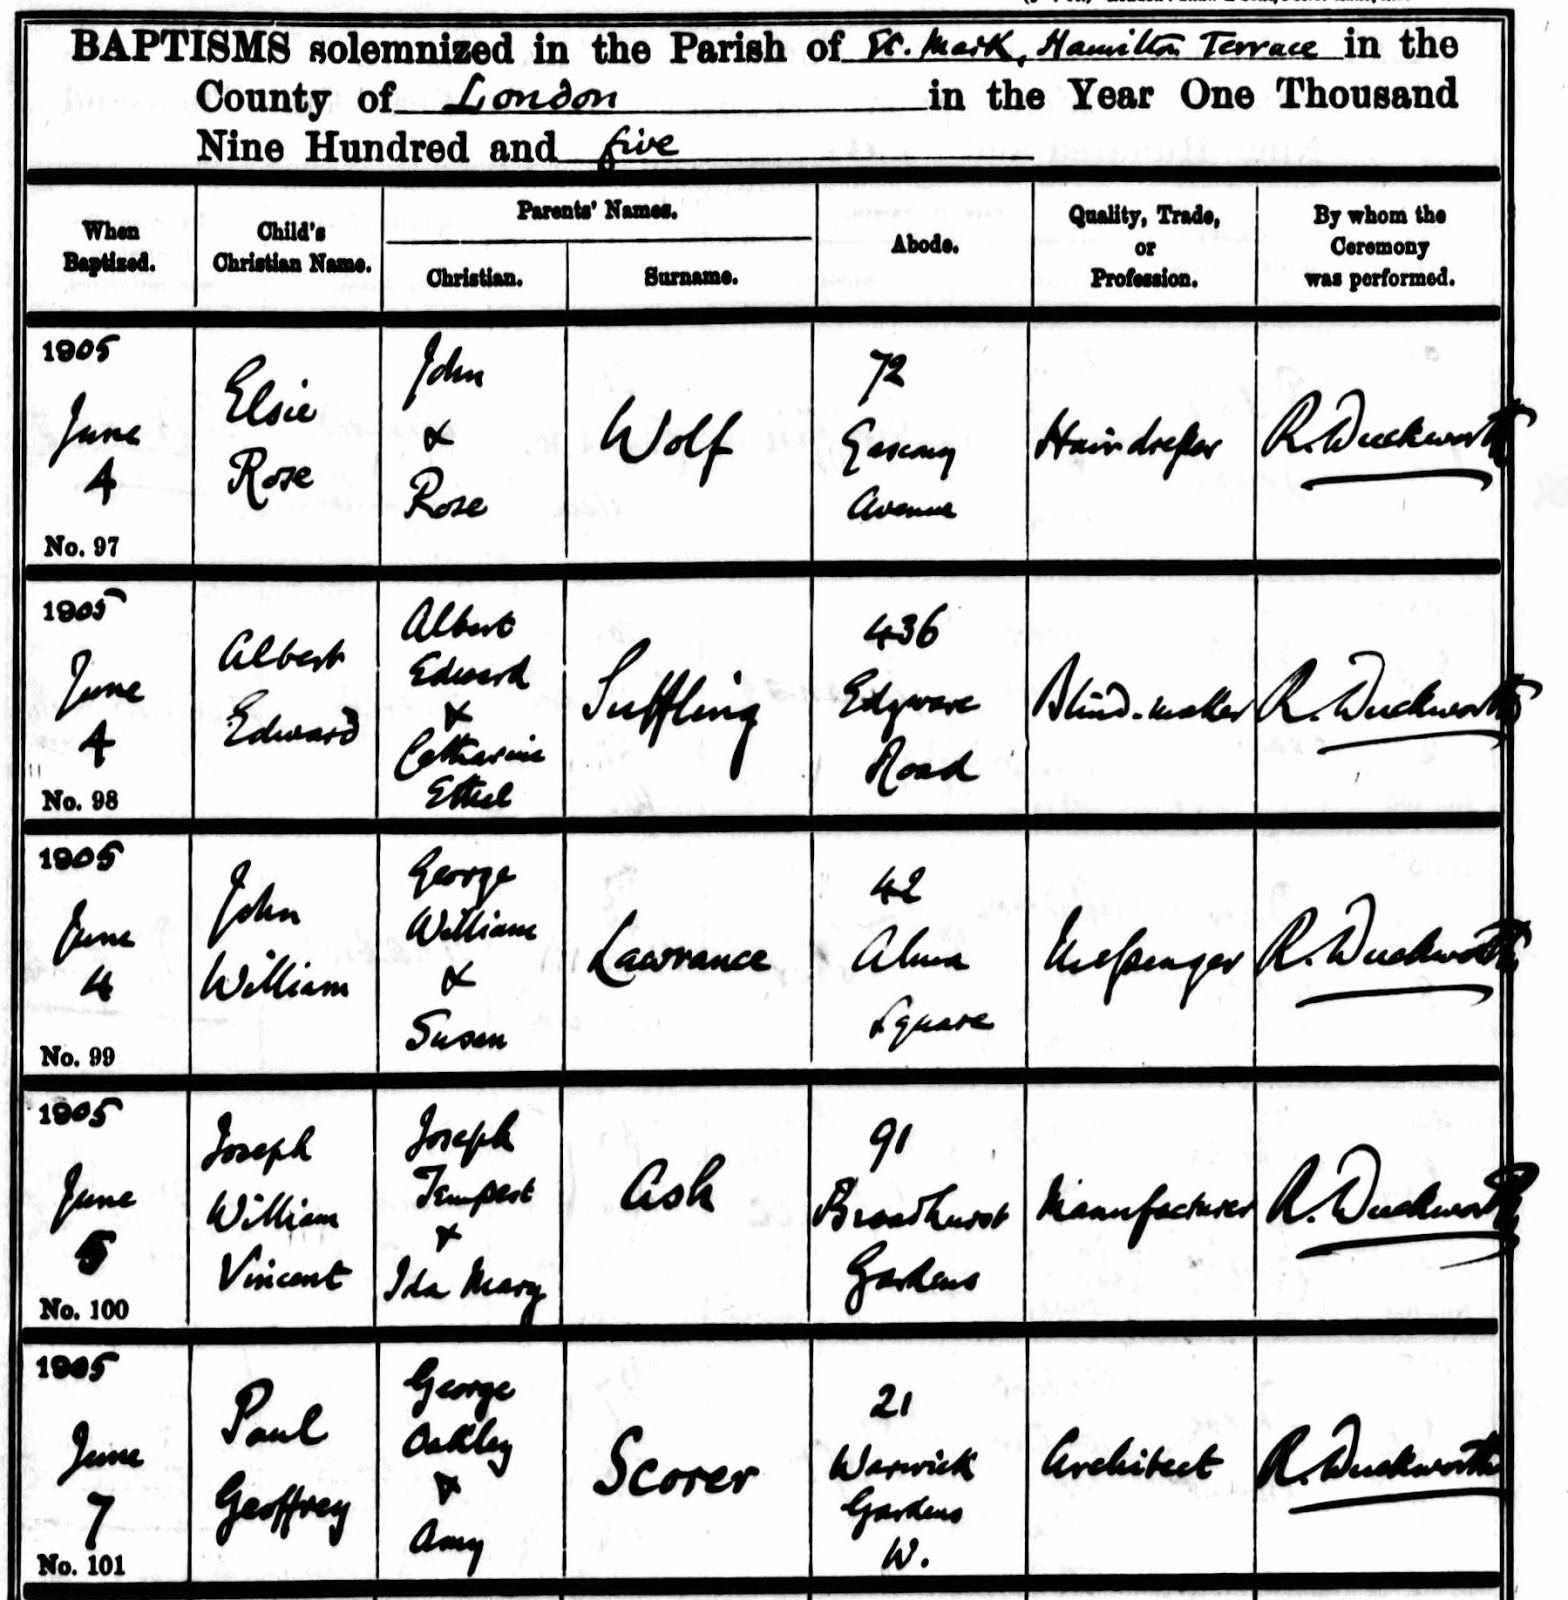 BAPTISMS solemnized in the Parish of St. Mark, Hamilton Terrace in the
County of London in the Year One Thousand
Nine Hundred and five
When
Baptized.
Child's
Christian Name.
Parents' Names.
Christian.
Surname.
Abode.
Quality, Trade,
or
Profession.
By whom the
Ceremony
was performed.
1905
June
4
No. 97
Elsie
Rose
John
&
Rose
Wolf
72
Gascony
Avenue
Hairdresser
R. Duckworth
1905
June
4
No. 98
Albert
Edward
Albert
Edward
&
Catharine
Ethel
Suffling
436
Edgware
Road
Blind-maker
R. Duckworth
1905
June
4
No. 99
John
William
George
William
&
Susan
Lawrance
42
Alma
Square
Messenger
R. Duckworth
1905
June
5
No. 100
Joseph
William
Vincent
Joseph
Tempest
&
Ida Mary
Ash
91
Broadhurst
Gardens
Manufacturer
R. Duckworth
1905
June
7
No. 101
Paul
Geoffrey
George
Oakley
&
Amy
Scorer
21
Warwick
Gardens
W.
Architect
R. Duckworth